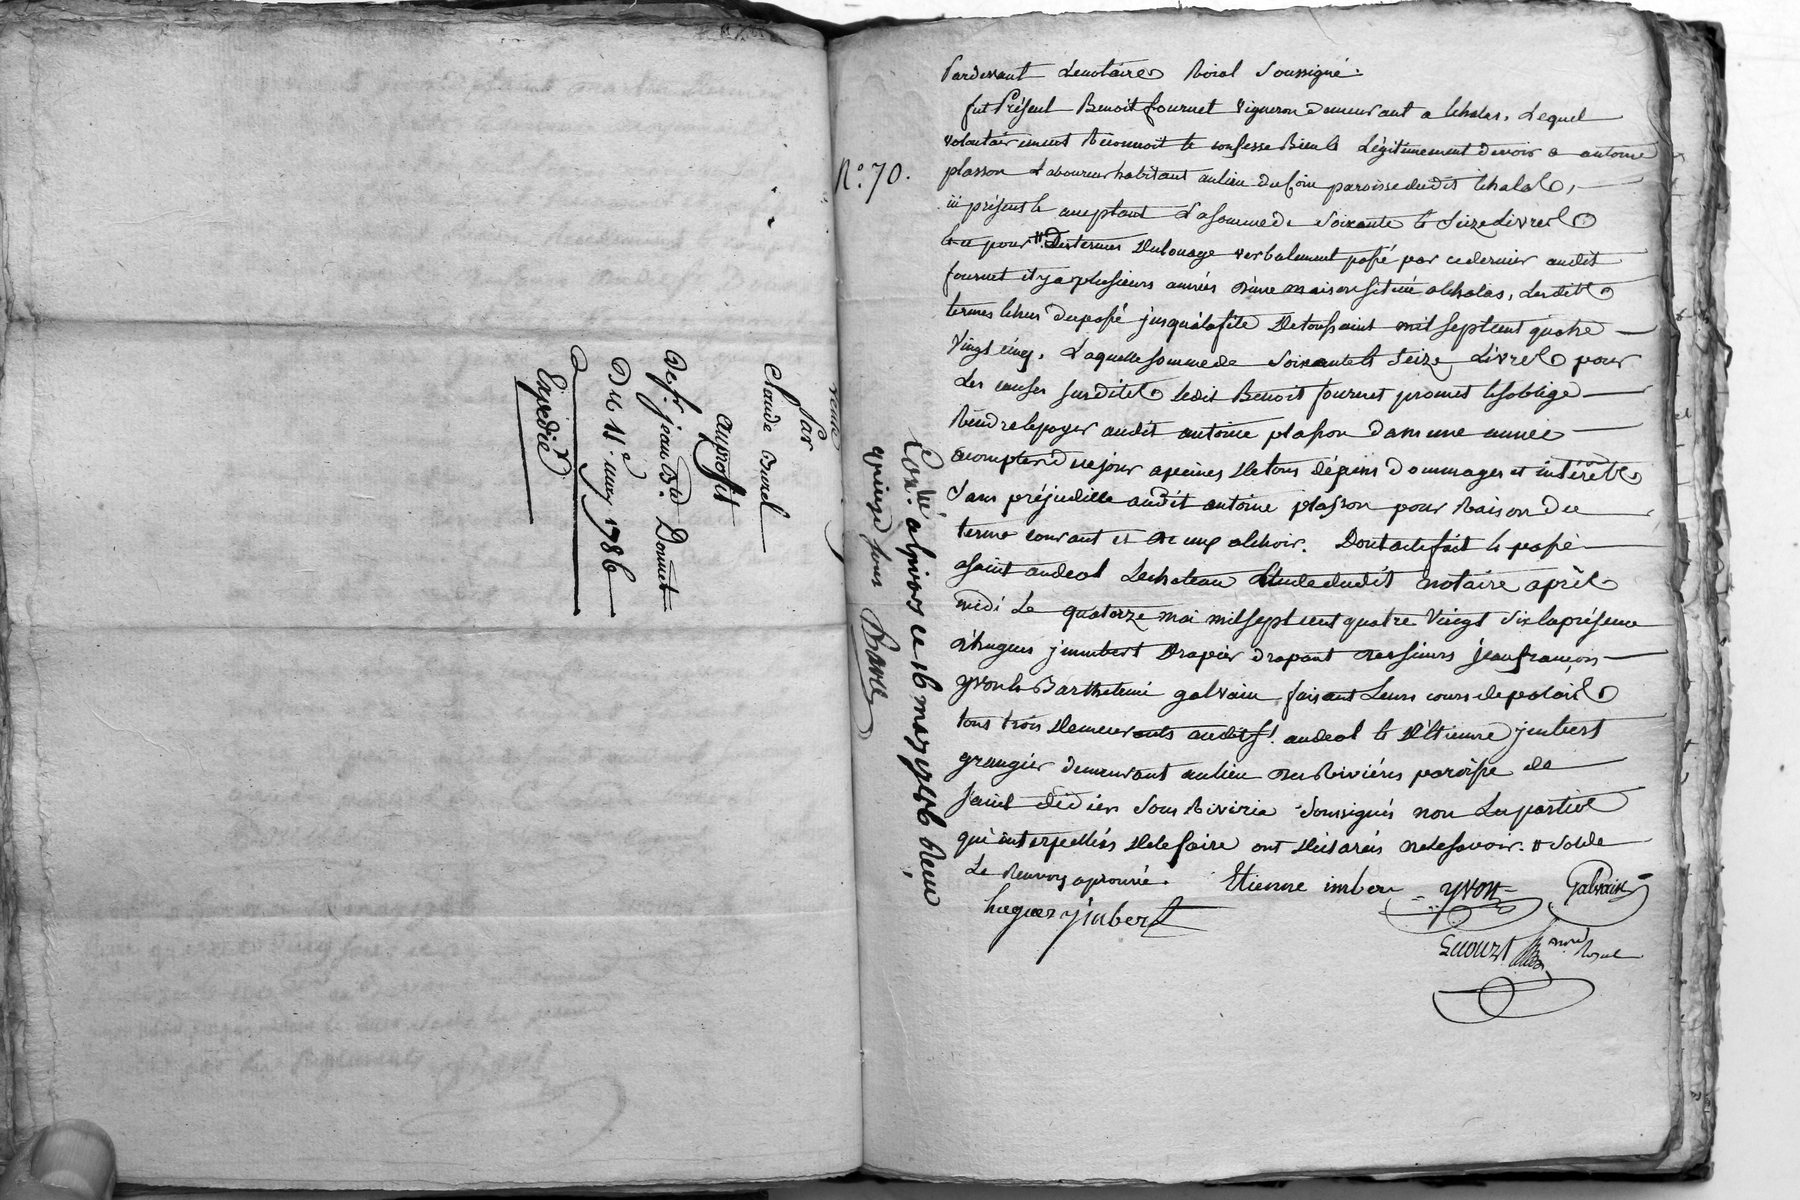 vente
Par
Claude Burel
au profit
de sr. jean Bd. Donnet
Du 11e. may 1786
Expedié
N.° 70.
Pardevant Lenotaire Roial Soussigné.
fut Présent Benoit fournet Vigneron demeurant a Echalas, Lequel
volontairement Reconnoit et confesse Bien et Légitimement devoir a antoine
plasson Laboureur habitant au lieu du foin paroisse dudit Echalas,
ici présent et acceptant La somme de Soixante et Seize Livres
et ce pour # Des termes du louage verbalement passé par ce dernier audit
fournet il y a plusieurs années d'une maison située a Echalas, Lesdits
termes Echus du passé jusqu'a la fête de toussaint mil sept cent quatre
Vingt cinq. Laquelle somme de Soixante et Seize Livres pour
Les causes susdites ledit Benoit fournet promet et s'oblige
Rendre et payer audit antoine plasson dans une année
a compter de ce jour a peines de tous dépens dommages et intérêts
Sans préjudice audit antoine plasson pour Raison du
terme courant et de ceux a Echoir. Dont acte fait et passé
a saint andeol Le chateau Etude dudit notaire après
midi Le quatorze mai mil sept cent quatre Vingt Six En présence
d'hugues jmmbert Drapier drapant des sieurs jean françois
yvon et Barthelemi galvain faisant Leurs cours de palais
tous trois Demeurants audit st. andeol et d'Etienne jmbert
grangier demeurant au lieu des Rivières paroisse de
saint didier sous Riverie Soussignés non Les parties
qui interpellées de le faire ont déclarés ne le savoir. # Solde
Le Renvoy aprouvé. Etienne imber yvon Galvain
hugues jmbert
Guourst nore. Roial
Conlé. a givors ce 16 may 1786 Reçu
quinze sous